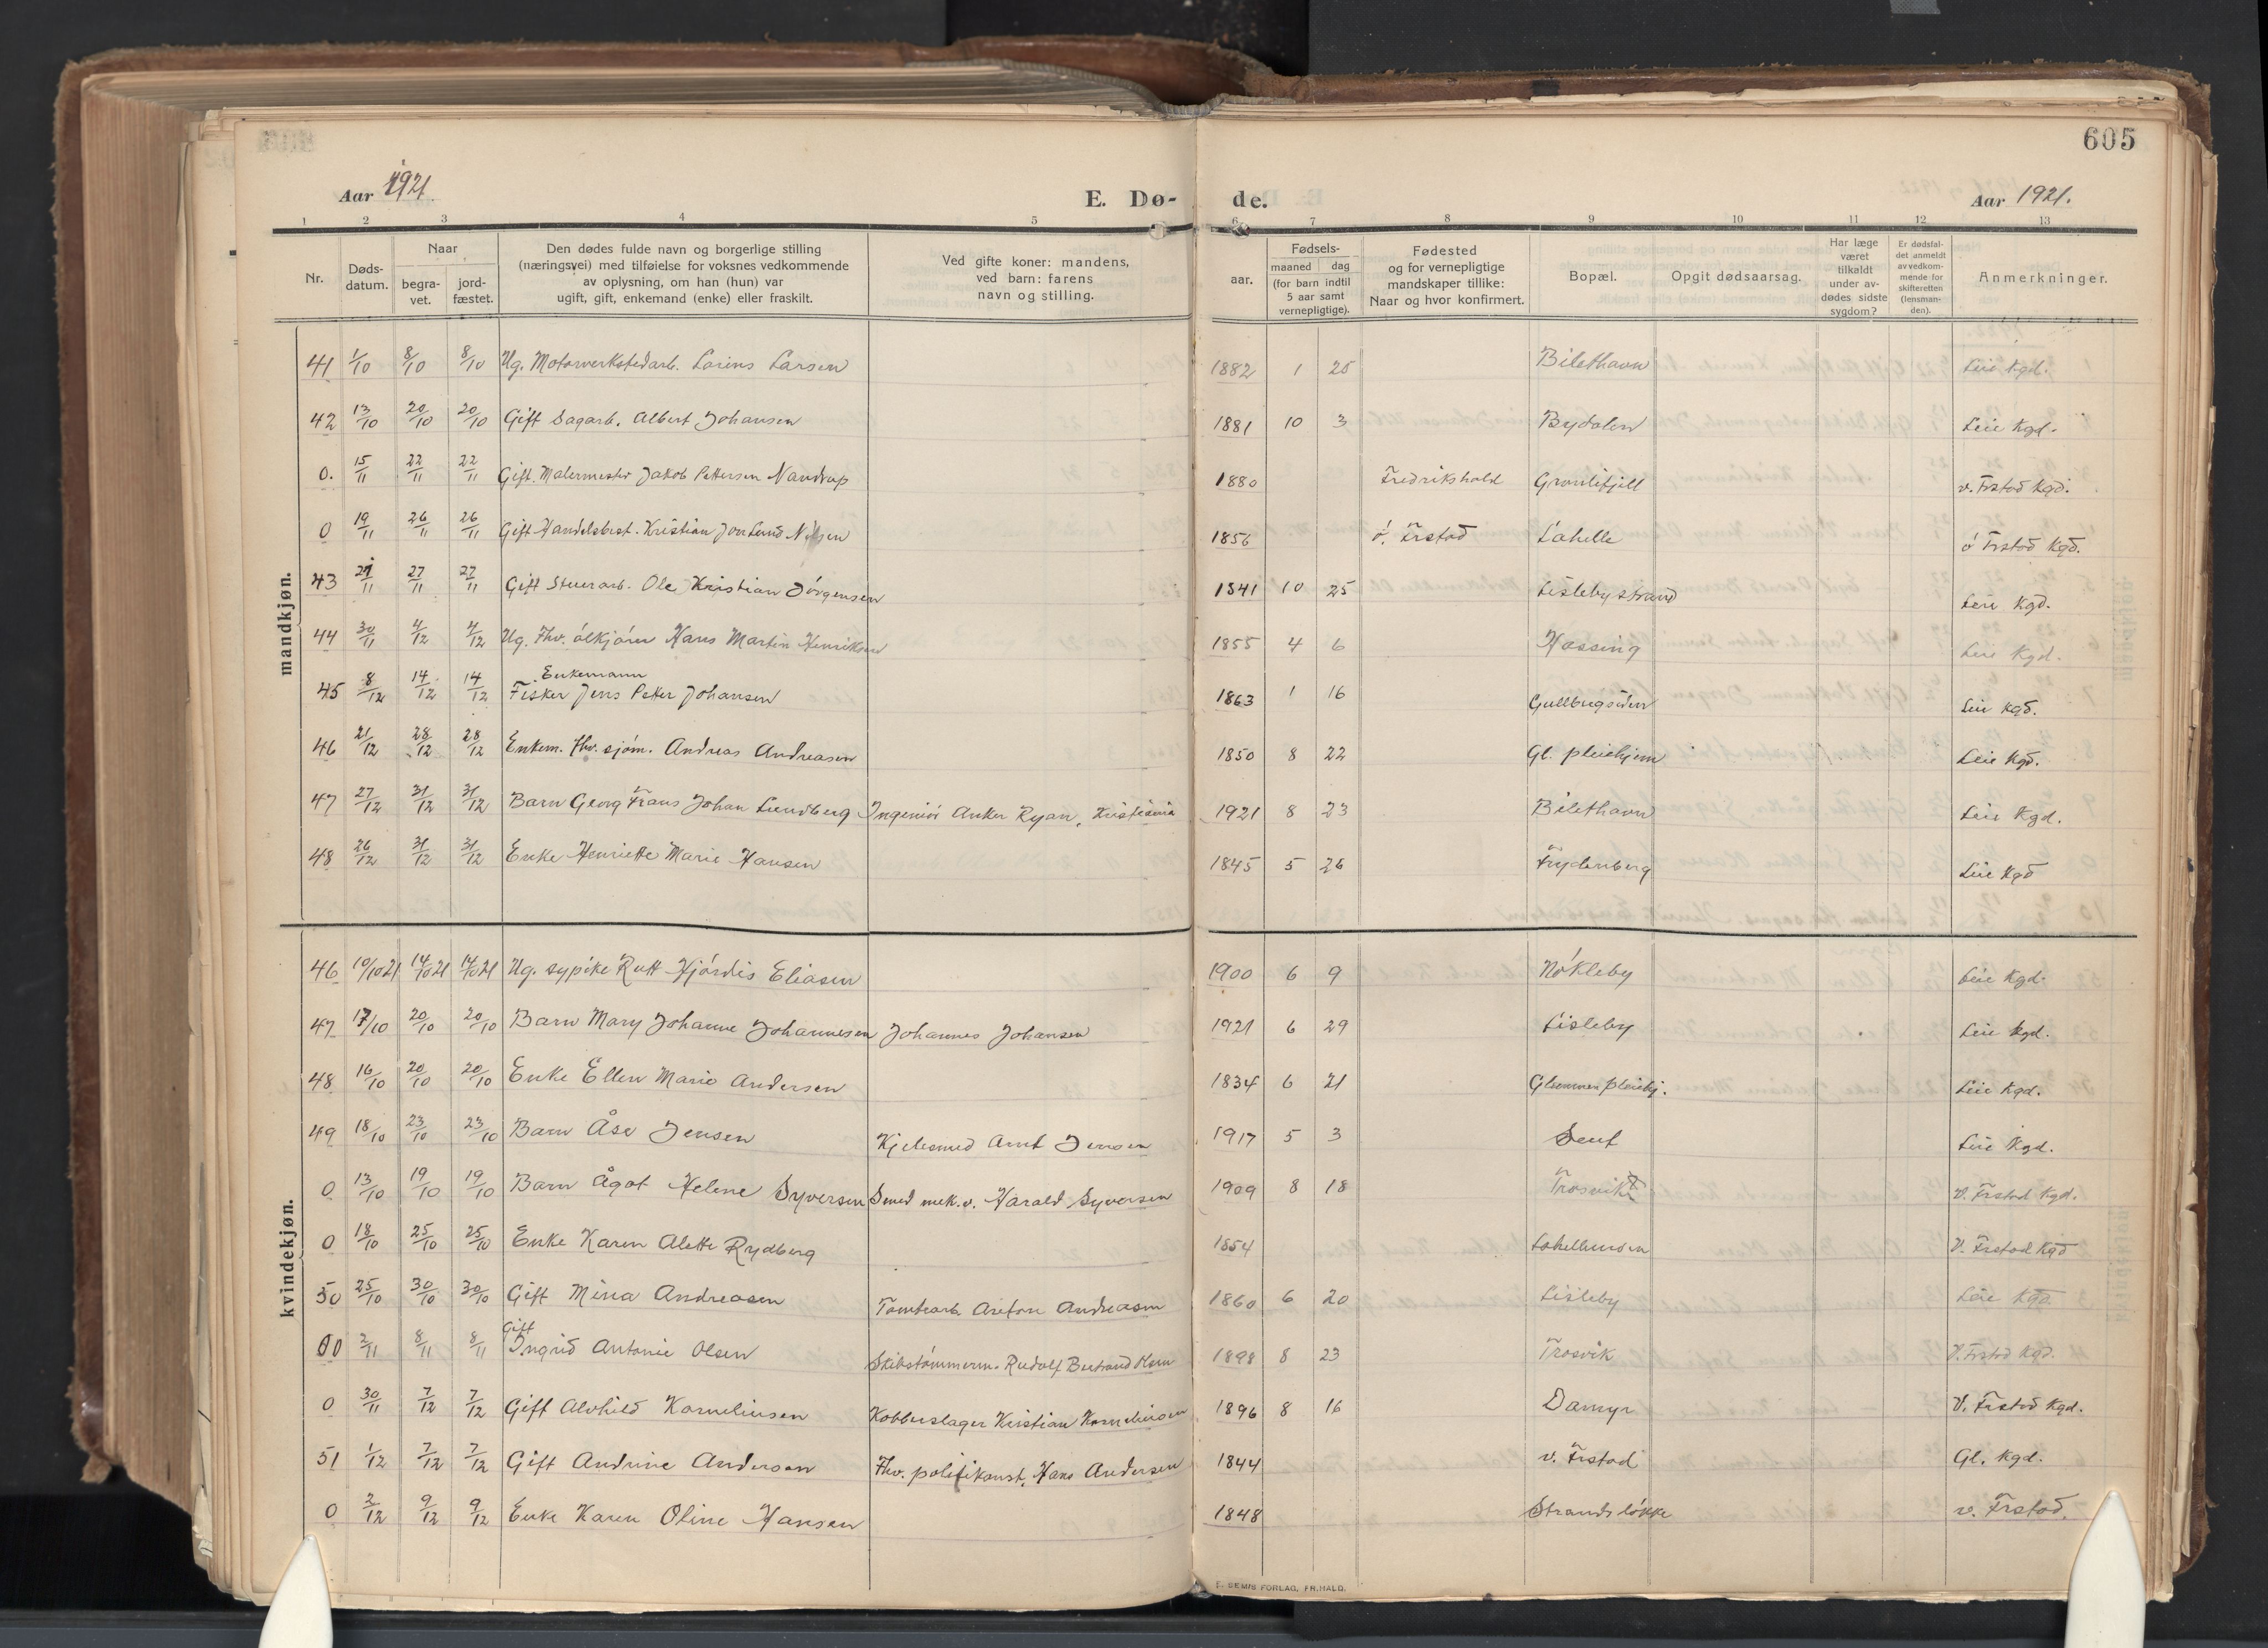 605
Aar 1921.
E. Dø-
de.
Aar 1921.
1 2 3 4 5 6 7 8 9 10 11 12 13
Nr.
Døds-
datum.
Naar
begra-
vet.
jord-
fæstet.
Den dødes fulde navn og borgerlige stilling
(næringsvei) med tilføielse for voksnes vedkommende
av oplysning, om han (hun) var
ugift, gift, enkemand (enke) eller fraskilt.
Ved gifte koner: mandens,
ved barn: farens
navn og stilling.
aar.
Fødsels-
maaned dag
(for barn indtil
5 aar samt
vernepligtige).
Fødested
og for vernepligtige
mandskaper tillike:
Naar og hvor konfirmert.
Bopæl.
Opgit dødsaarsag.
Har læge
været
tilkaldt
under av-
dødes sidste
sygdom?
Er dødsfal-
det anmeldt
av vedkom-
mende for
skifteretten
(lensman-
den).
Anmerkninger.
mandkjøn.
41 1/10 8/10 8/10 Ug. Motorverkstedarb. Lorens Larsen 1882 1 25 Bilethavn Leie Kgd.
42 13/10 20/10 20/10 Gift Sagarb. Albert Johansen 1881 10 3 Bydalen Leie Kgd.
0. 15/11 22/11 22/11 Gift. Malermester Jakob Pettersen Nandrup 1880 Fredrikshald Gronlifjell v. Frstad Kgd.
0 19/11 26/11 26/11 Gift Handelsbest. Kristian Nilsen 1856 ó. Frstad Lahelle ó Frstad Kgd.
43 21/11 27/11 27/11 Gift Stuerarb. Ole Kristian Jórgensen 1841 10 25 Lislebystrand Leie Kgd.
44 30/11 4/12 4/12 Ug. Fhv. ólkjórer Hans Martin Henriksen 1855 4 6 Hassing Leie Kgd.
Enkemann
45 8/12 14/12 14/12 Fisker Jens Petter Johansen 1863 1 16 Gullbugsiden Leie Kgd.
46 21/12 28/12 28/12 Enkem. Fhv. sjóm. Andreas Andreasen 1850 8 22 Gl. pleiehjem Leie Kgd.
47 27/12 31/12 31/12 Barn Georg Frans Johan Lundberg Ingeniór Anker Ryan, Kristiania 1921 8 23 Bilethavn Leie Kgd.
48 26/12 31/12 31/12 Enke Henriette Marie Hansen 1845 5 26 Frydenberg Leie Kgd
kvindekjøn.
46 10/10 21 14/10 21 14/10 21 Ug. sypike Rutt Hjórdis Eliasen 1900 6 9 Nókleby Leie Kgd.
47 17/10 20/10 20/10 Barn Mary Johanne Johannesen Johannes Johansen 1921 6 29 Lisleby Leie Kgd.
48 16/10 20/10 20/10 Enke Ellen Marie Andersen 1834 6 21 Glemmen pleiehj. Leie Kgd.
49 18/10 23/10 23/10 Barn Åse Jensen Kjelesmed Arnt Jensen 1917 5 3 Seut Leie Kgd.
0 13/10 19/10 19/10 Barn Ågot Helene Syversen Smed mek. v. Harald Syversen 1909 8 18 Trosvik V. Frstad Kgd.
0 18/10 25/10 25/10 Enke Karen Alette Rydberg 1854 V. Frstad Kgd
50 25/10 30/10 30/10 Gift Mina Andreasen Tomtearb. Anton Andreasen 1860 6 20 Lisleby Leie Kgd.
Gift
00 2/11 8/11 8/11 Ingrid Antonie Olsen Skibstómmerm. Rudolf Bertrand Olsen 1898 8 23 Trosvik V. Frstad Kgd.
0 30/11 7/12 7/12 Gift Alvhild Korneliusen Kobberslager Kristian Korneliusen 1896 8 16 Damyr V. Frstad Kgd.
51 1/12 7/12 7/12 Gift Andrine Andersen Fhv. politikonst. Hans Andersen 1844 v. Frstad Gl. Kgd.
0 2/12 9/12 9/12 Enke Karen Oline Hansen 1848 Strandslókke v. Frstad.
E. SEMS FORLAG, FR.HALD.